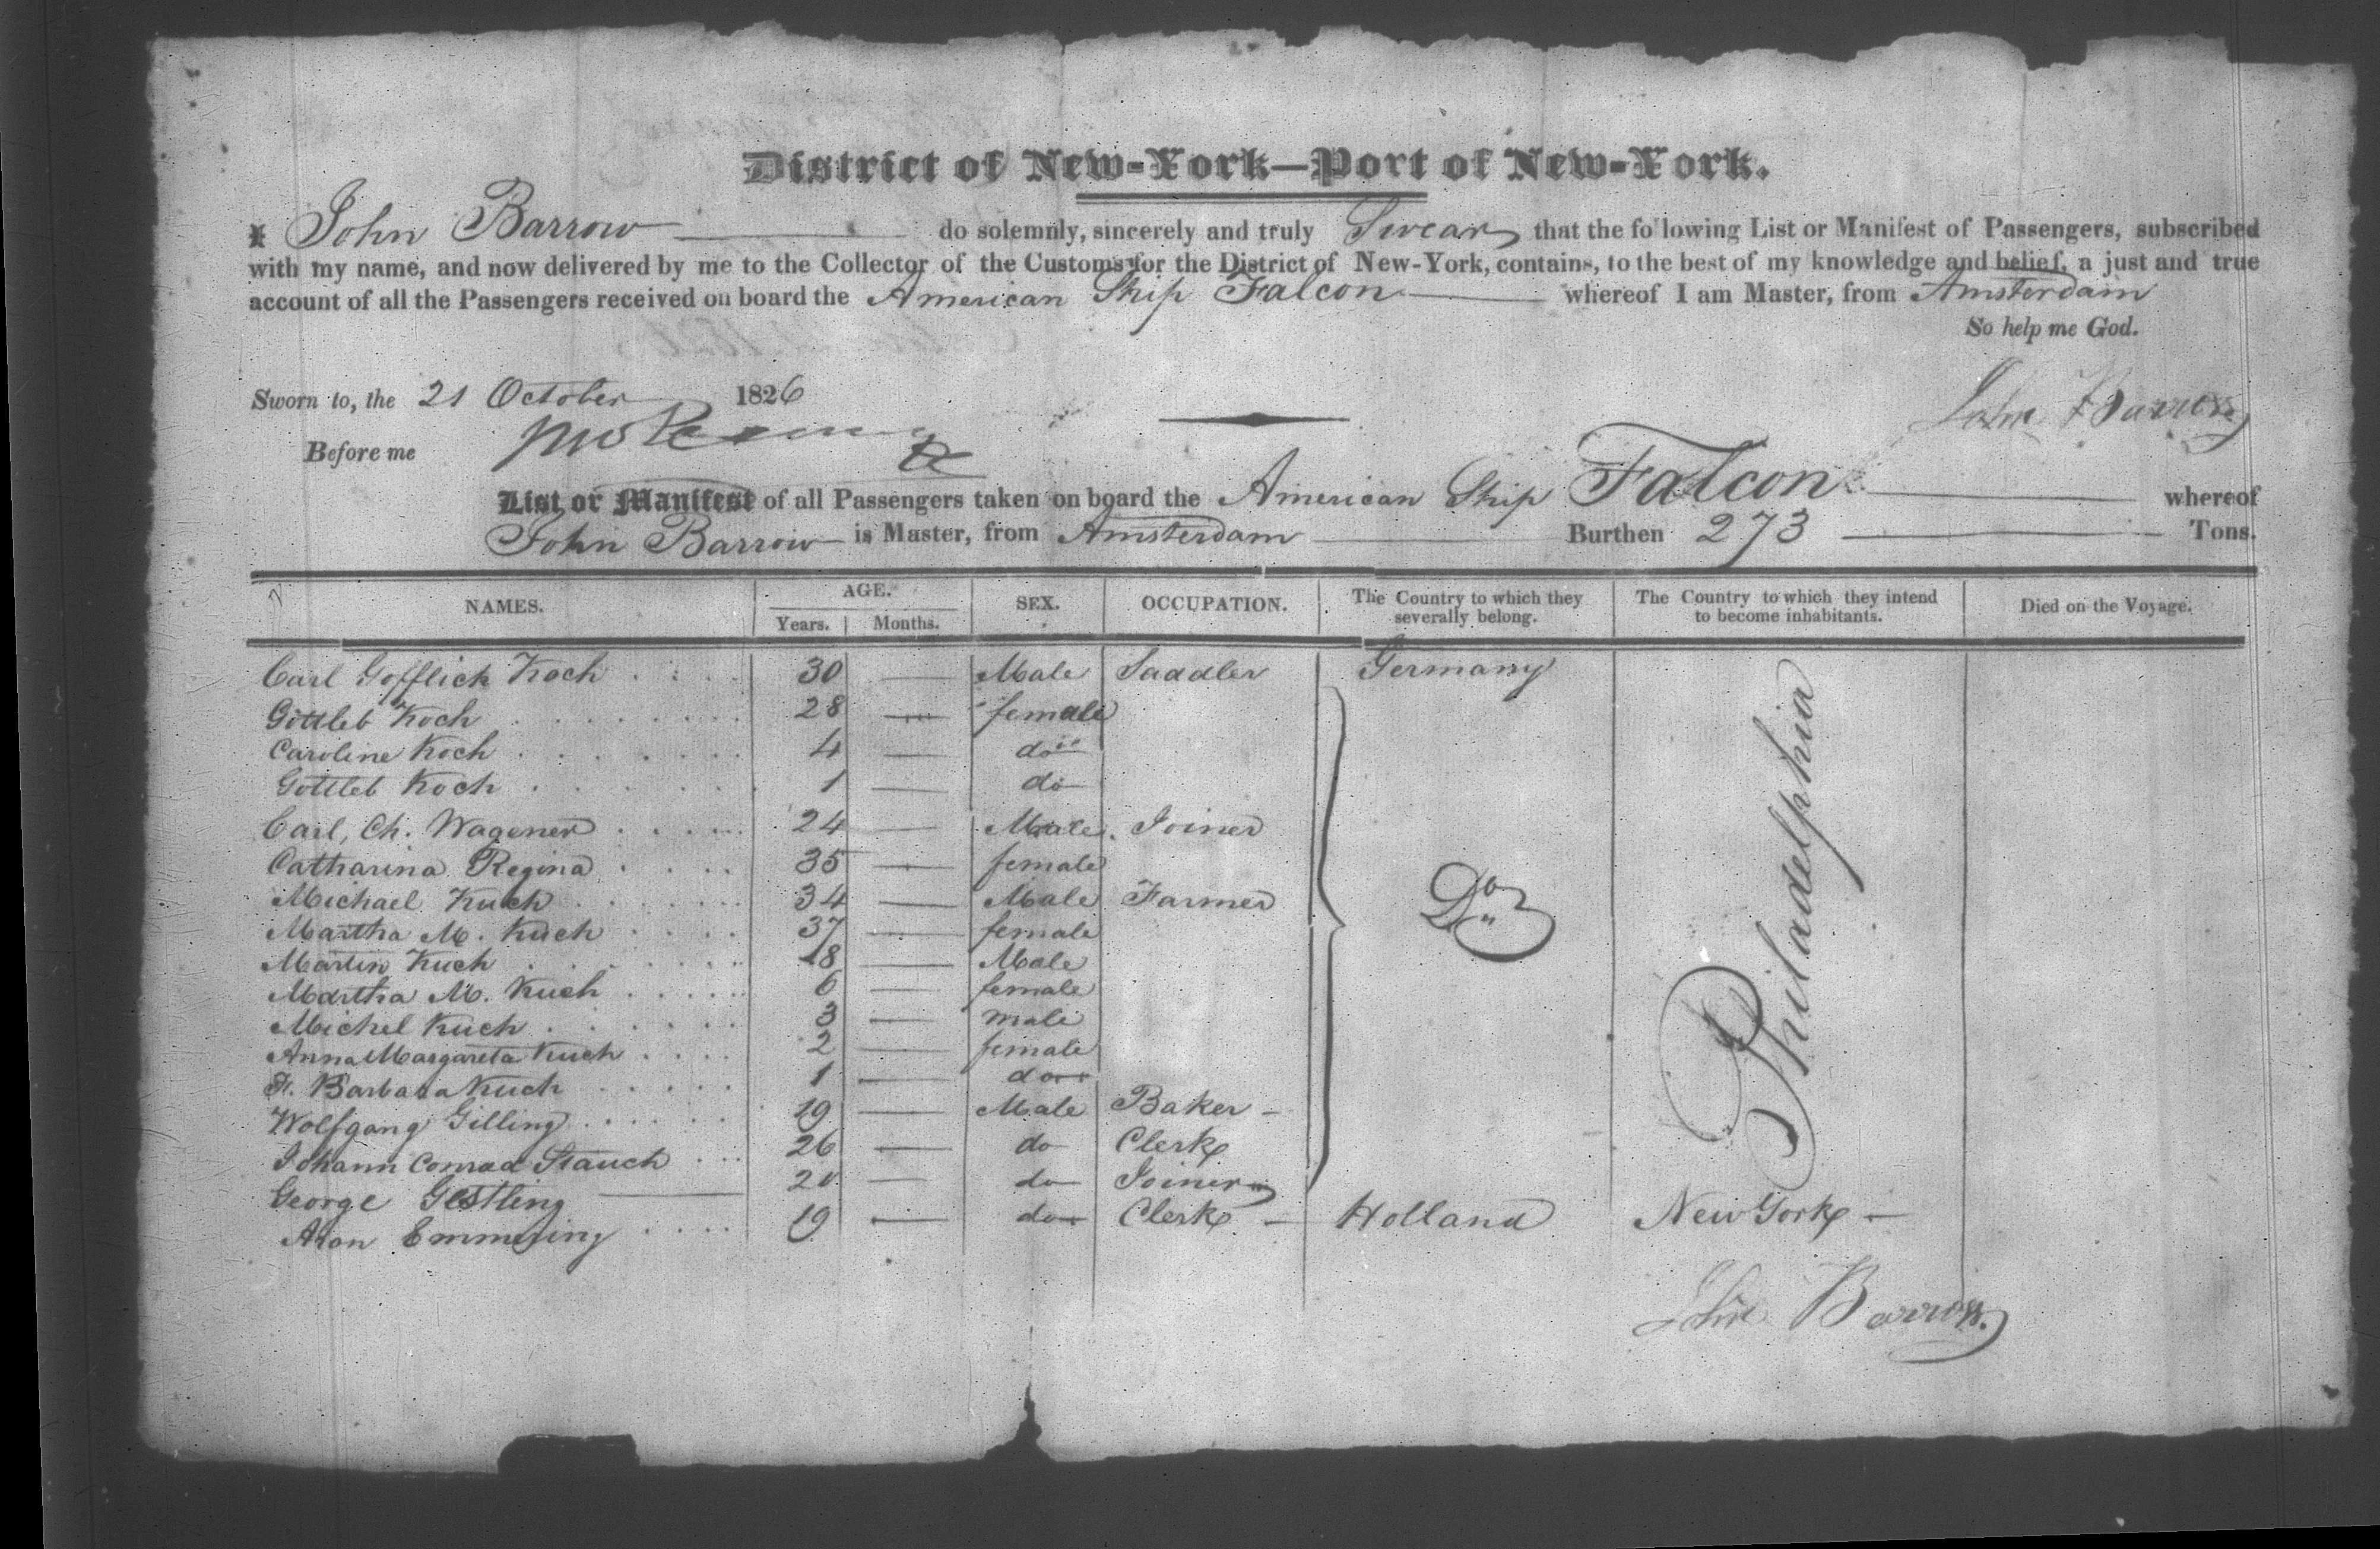 District of New-York—Port of New-York.
I John Barrow do solemnly, sincerely and truly Swear that the following List or Manifest of Passengers, subscribed
with my name, and now delivered by me to the Collector of the Customs for the District of New-York, contains, to the best of my knowledge and belief, a just and true
account of all the Passengers received on board the American Ship Falcon whereof I am Master, from Amsterdam
So help me God.
Sworn to, the 21 October 1826
John Barrow
Before me
List or Manifest of all Passengers taken on board the American Ship Falcon whereof
John Barrow is Master, from Amsterdam Burthen 273 Tons.
NAMES. AGE. Years. Months. SEX. OCCUPATION. The Country to which they severally belong. The Country to which they intend to become inhabitants. Died on the Voyage.
Carl Gofflich Koch 30 — Male Saddler Germany
Gottleb Koch 28 — female
Caroline Koch 4 — do
Gottleb Koch 1 — do
Carl, Ch. Wagener 24 — Male Joiner
Catharina Regina 35 — female
Michael Kuch 34 — Male Farmer Do Philadelphia
Martha M. Kuch 37 — female
Martin Kuch 18 — Male
Martha M. Kuch 6 — female
Michel Kuch 3 — male
Anna Margareta Kuch 2 — female
Barbara Kuch 1 — do
Wolfgang Gilling 19 — Male Baker
Johann Conrad Stauch 26 — do Clerk
George Gestling 20 — do Joiner
Aron Emmering 19 — do Clerk — Holland New York —
John Barrow